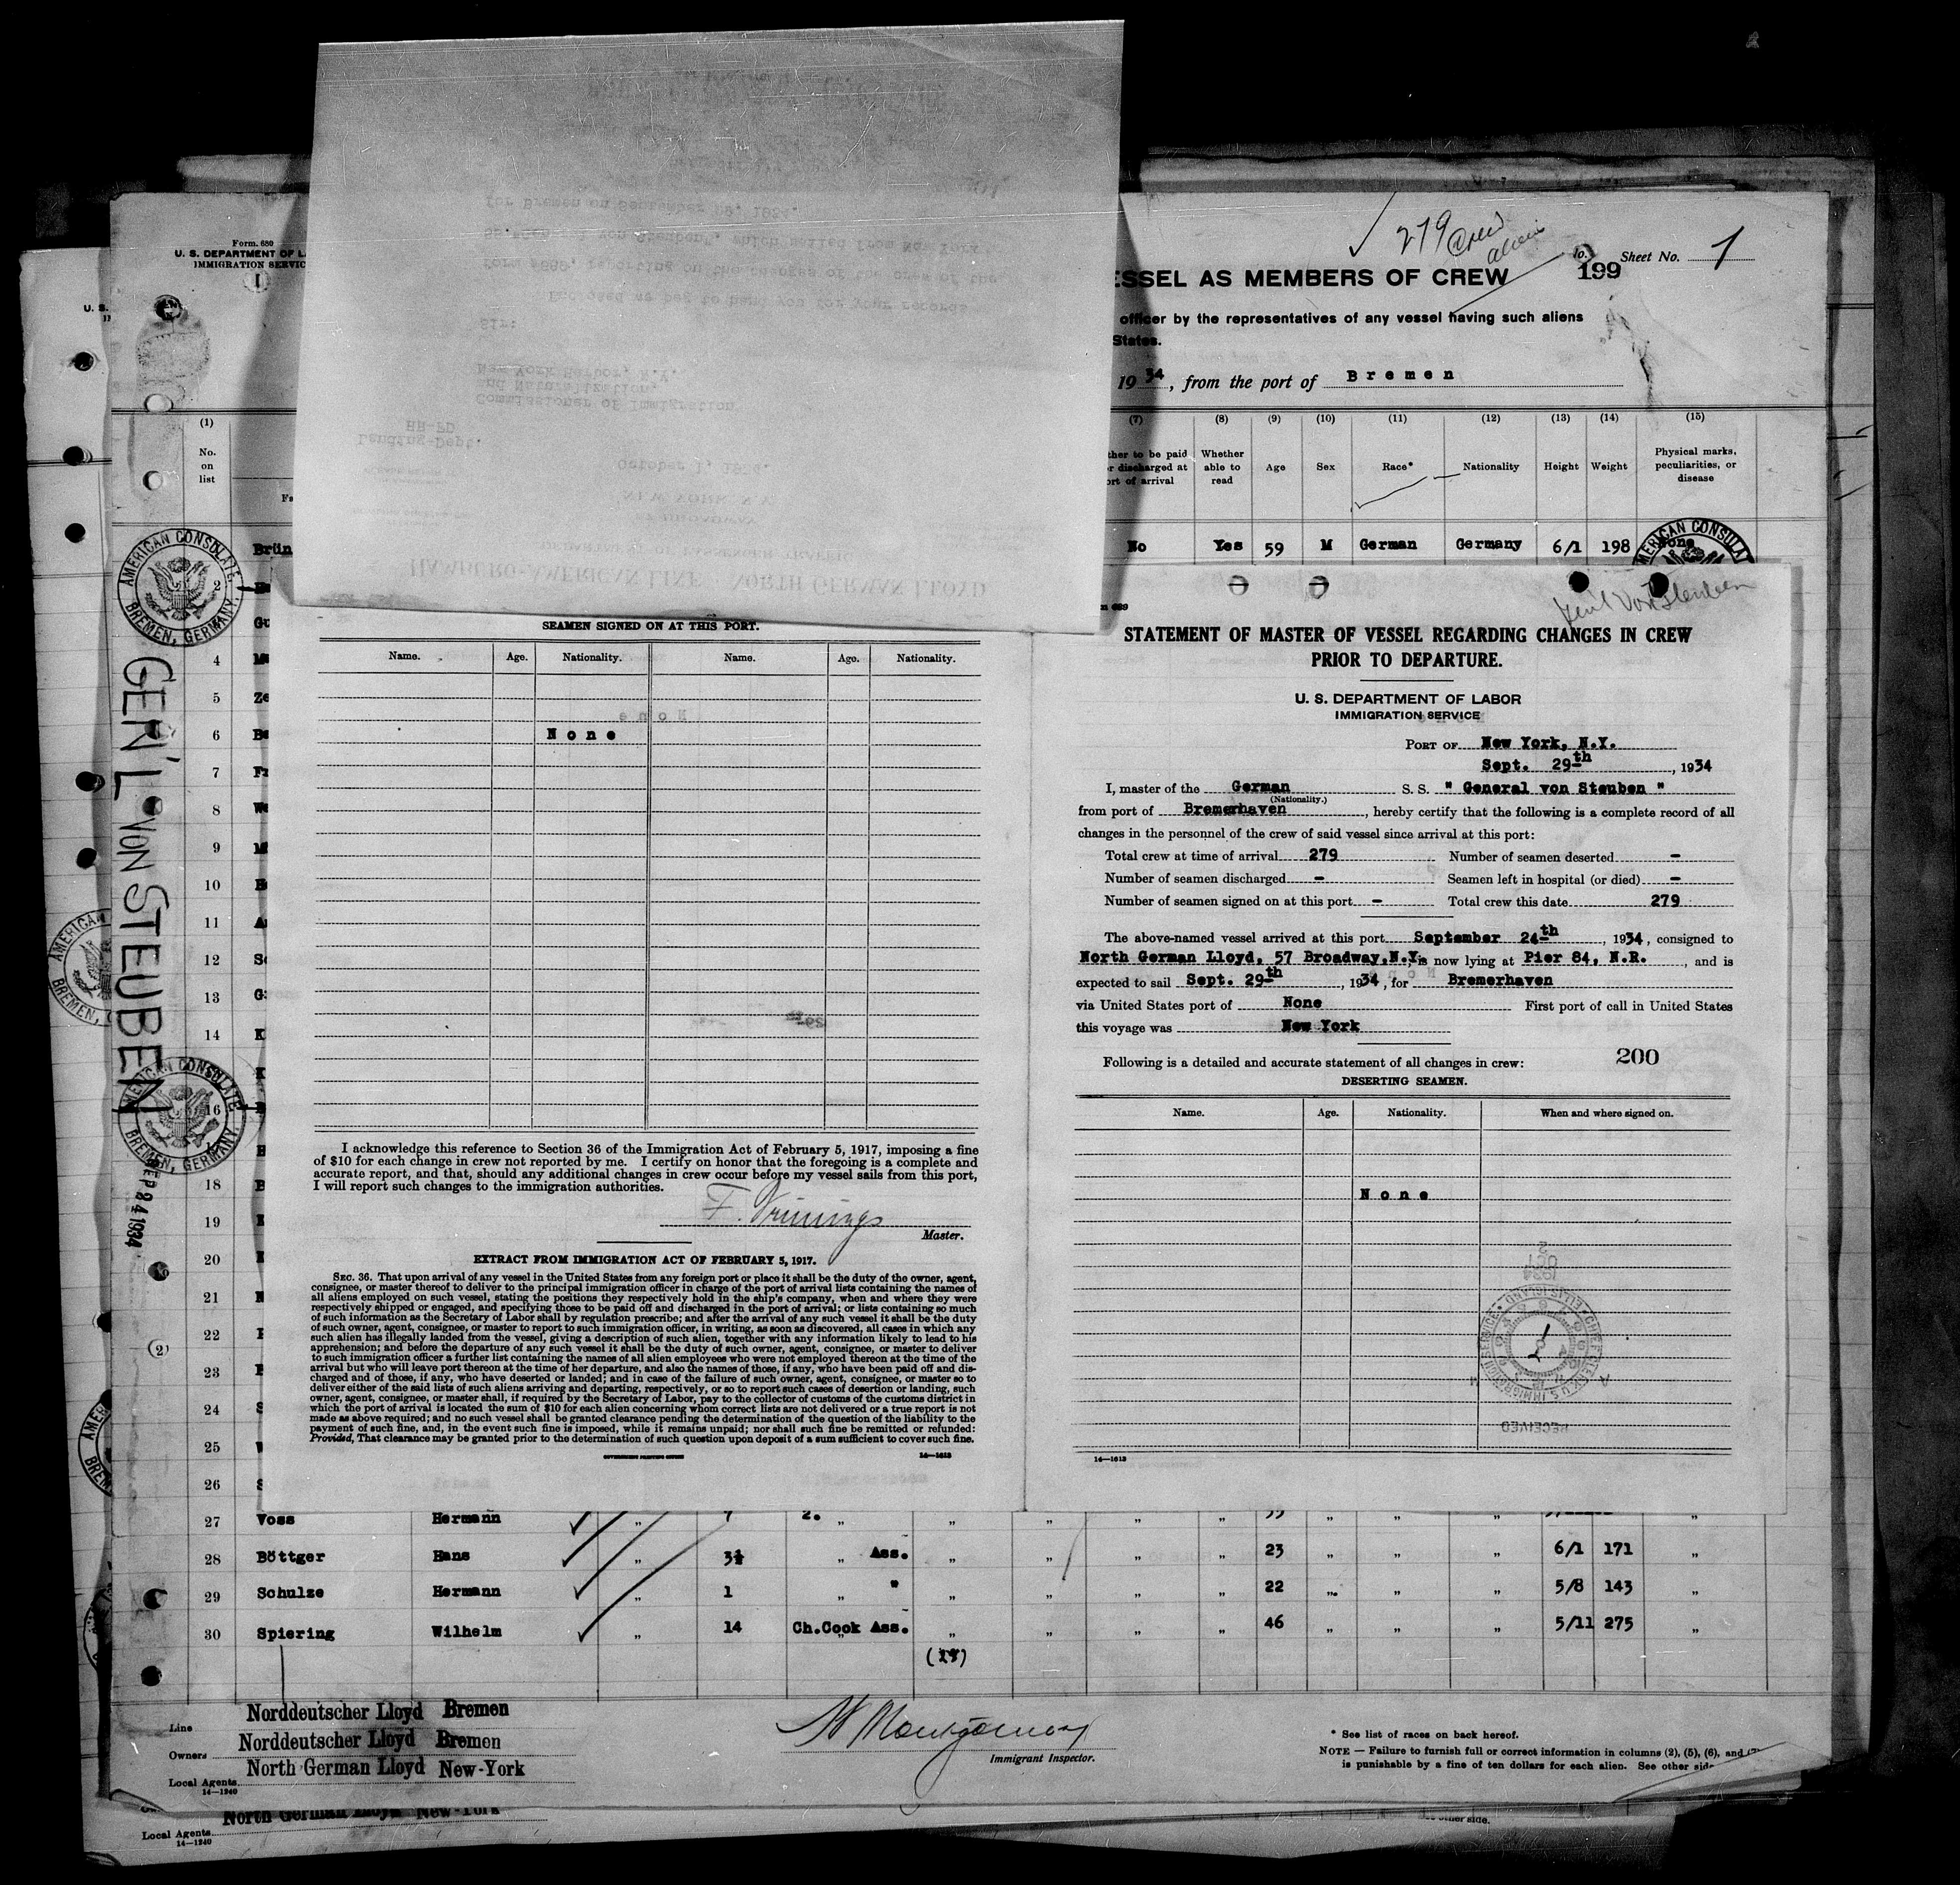 Form. 680
U. S. DEPARTMENT OF L
IMMIGRATION SERVIC
279 Crew
alien
ESSEL AS MEMBERS OF CREW
199
Sheet No. 1
officer by the representatives of any vessel having such aliens
States.
1934, from the port of Bremen
(1) (7) (8) (9) (10) (11) (12) (13) (14) (15)
No. on list
ther to be paid or discharged at port of arrival
Whether able to read
Age
Sex
Race*
Nationality
Height
Weight
Physical marks, peculiarities, or disease
Brün No Yes 59 M German Germany 6/1 198 None
AMERICAN CONSULATE
BREMEN, GERMANY
GEN'L VON STEUBEN
SEP 24 1934
HAMBURG-AMERICAN LINE NORTH GERMAN LLOYD
DEPARTMENT OF PASSENGER TRAFFIC
57 BROADWAY
NEW YORK, N.Y.
October 1, 1934.
Landing-Dept.
HR-FD
Commissioner of Immigration
and Naturalization,
New York Harbor, N.Y.
Sir:
Enclosed we beg to hand you for your records
form #689, reporting on the changes of the crew of the
SS. General von Steuben, which sailed from New York
for Bremen on September 29, 1934.
SEAMEN SIGNED ON AT THIS PORT.
Name. Age. Nationality. Name. Age. Nationality.
None
I acknowledge this reference to Section 36 of the Immigration Act of February 5, 1917, imposing a fine
of $10 for each change in crew not reported by me. I certify on honor that the foregoing is a complete and
accurate report, and that, should any additional changes in crew occur before my vessel sails from this port,
I will report such changes to the immigration authorities.
Master.
EXTRACT FROM IMMIGRATION ACT OF FEBRUARY 5, 1917.
SEC. 36. That upon arrival of any vessel in the United States from any foreign port or place it shall be the duty of the owner, agent,
consignee, or master thereof to deliver to the principal immigration officer in charge of the port of arrival lists containing the names of
all aliens employed on such vessel, stating the positions they respectively hold in the ship's company, when and where they were
respectively shipped or engaged, and specifying those to be paid off and discharged in the port of arrival; or lists containing so much
of such information as the Secretary of Labor shall by regulation prescribe; and after the arrival of any such vessel it shall be the duty
of such owner, agent, consignee, or master to report to such immigration officer, in writing, as soon as discovered, all cases in which any
such alien has illegally landed from the vessel, giving a description of such alien, together with any information likely to lead to his
apprehension; and before the departure of any such vessel it shall be the duty of such owner, agent, consignee, or master to deliver
to such immigration officer a further list containing the names of all alien employees who were not employed thereon at the time of the
arrival but who will leave port thereon at the time of her departure, and also the names of those, if any, who have been paid off and dis-
charged and of those, if any, who have deserted or landed; and in case of the failure of such owner, agent, consignee, or master so to
deliver either of the said lists of such aliens arriving and departing, respectively, or so to report such cases of desertion or landing, such
owner, agent, consignee, or master shall, if required by the Secretary of Labor, pay to the collector of customs of the customs district in
which the port of arrival is located the sum of $10 for each alien concerning whom correct lists are not delivered or a true report is not
made as above required; and no such vessel shall be granted clearance pending the determination of the question of the liability to the
payment of such fine, and, in the event such fine is imposed, while it remains unpaid; nor shall such fine be remitted or refunded:
Provided, That clearance may be granted prior to the determination of such question upon deposit of a sum sufficient to cover such fine.
GOVERNMENT PRINTING OFFICE 14—1613
Genl Von Steuben
STATEMENT OF MASTER OF VESSEL REGARDING CHANGES IN CREW
PRIOR TO DEPARTURE.
U. S. DEPARTMENT OF LABOR
IMMIGRATION SERVICE
PORT OF New York, N.Y.
Sept. 29th, 1934
I, master of the German S. S. " General von Steuben "
(Nationality.)
from port of Bremerhaven, hereby certify that the following is a complete record of all
changes in the personnel of the crew of said vessel since arrival at this port:
Total crew at time of arrival 279 Number of seamen deserted -
Number of seamen discharged - Seamen left in hospital (or died) -
Number of seamen signed on at this port - Total crew this date 279
The above-named vessel arrived at this port September 24th, 1934, consigned to
North German Lloyd, 57 Broadway, N.Y. is now lying at Pier 84, N.R., and is
expected to sail Sept. 29th, 1934, for Bremerhaven
via United States port of None First port of call in United States
this voyage was New York
Following is a detailed and accurate statement of all changes in crew: 200
DESERTING SEAMEN.
Name. Age. Nationality. When and where signed on.
None
1934
OCT
2
RECEIVED
14—1613
27 Voss Hermann 7 2. „
28 Böttger Hans „ 3½ „ Ass. „ „ „ „ 23 „ „ „ 6/1 171 „
29 Schulze Hermann „ 1 „ " „ „ „ „ 22 „ „ „ 5/8 143 „
30 Spiering Wilhelm „ 14 Ch.Cook Ass. „ „ „ „ 46 „ „ „ 5/11 275 „
Line Norddeutscher Lloyd Bremen
Owners Norddeutscher Lloyd Bremen
Local Agents North German Lloyd New-York
14—1240
Montgomery
Immigrant Inspector.
* See list of races on back hereof.
NOTE — Failure to furnish full or correct information in columns (2), (5), (6), and (7)
is punishable by a fine of ten dollars for each alien. See other side
North German Lloyd New-York
Local Agents
14—1240
other side.